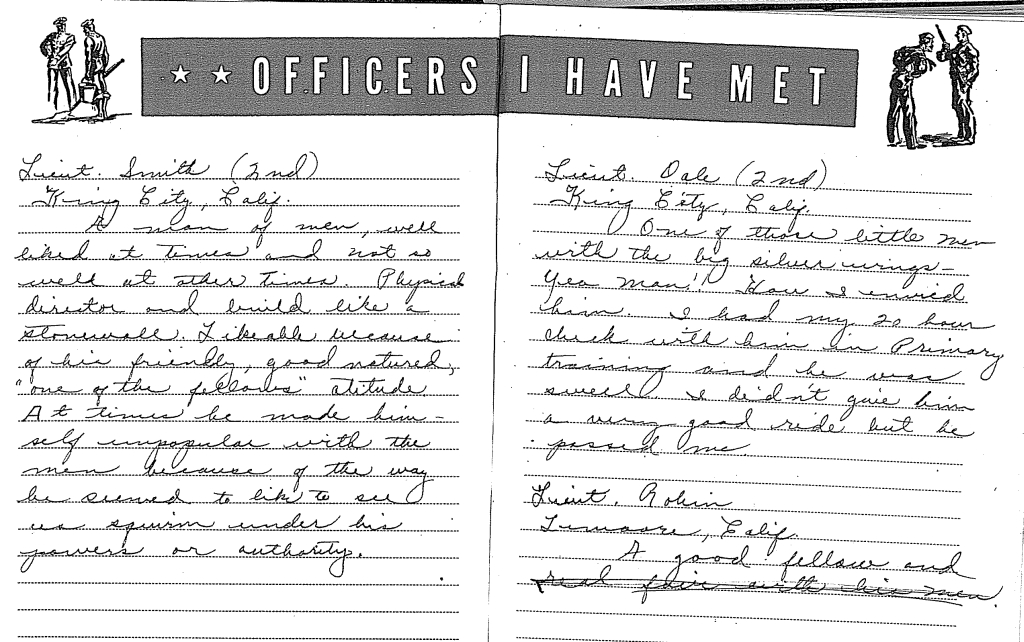 ★ ★ OFFICERS I HAVE MET
Lieut. Smith (2nd)
King City, Calif.
A man of men, well
liked at times and not so
well at other times. Physical
director and build like a
stonewall. Likeable because
of his friendly, good natured,
"one of the fellows" atitude
At times he made him-
self unpopular with the
men because of the way
he seemed to like to see
us squirm under his
powers or authority.
Lieut. Dale (2nd)
King City, Calif.
One of those little men
with the big silver wings-
Yea man!! How I envied
him. I had my 20 hour
check with him in Primary
training and he was
swell I didn't give him
a very good ride but he
passed me.
Lieut. Robin
Lemoore, Calif.
A good fellow and
real fair with his men.